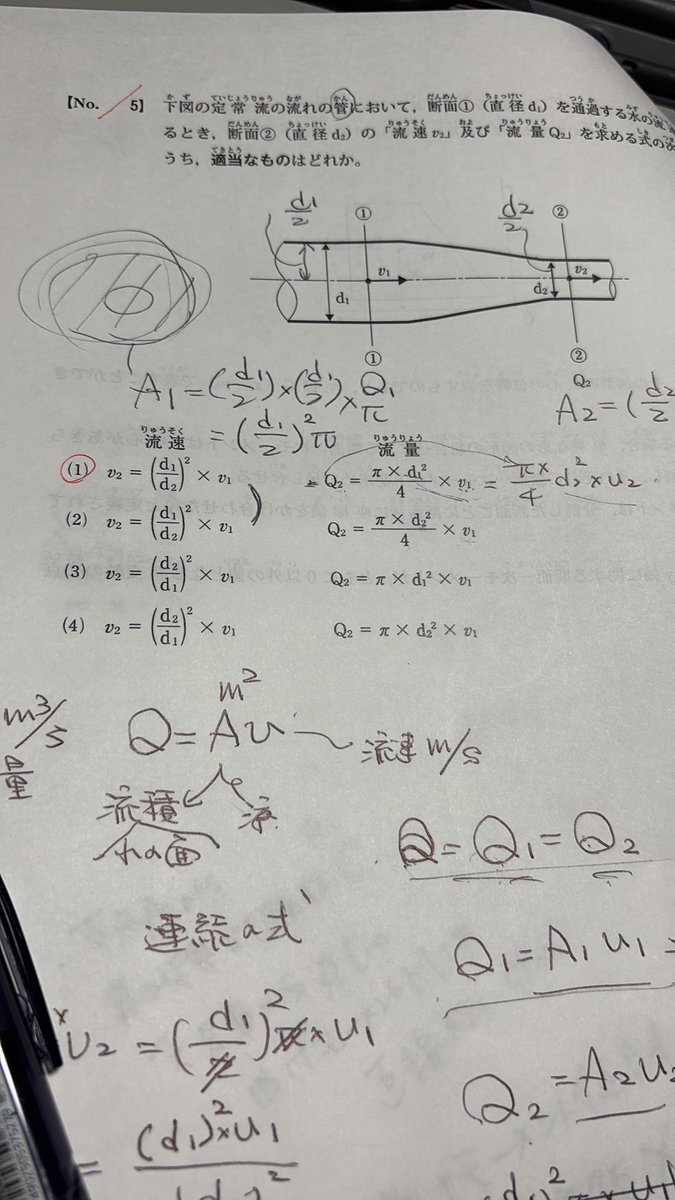 【No. 5】 下図の定常流の流れの管において，断面①（直径d₁）を通過する水の流
るとき，断面②（直径d₂）の「流速v₂」及び「流量Q₂」を求める式の
うち，適当なものはどれか。
d₁/2
d₂/2
① ②
v₁ v₂
d₁ d₂
① ②
Q₂
A₁ = (d₁/2) × (d₁/2) × π
Q₁
A₂ = (d₂/2
= (d₁/2)² π
流速 流量
(1) v₂ = (d₁/d₂)² × v₁ Q₂ = π × d₁²/4 × v₁ = π×/4 d₂² × u₂
(2) v₂ = (d₁/d₂)² × v₁ Q₂ = π × d₂²/4 × v₁
(3) v₂ = (d₂/d₁)² × v₁ Q₂ = π × d₁² × v₁
(4) v₂ = (d₂/d₁)² × v₁ Q₂ = π × d₂² × v₁
m²
m³/s
Q = Au 流速 m/s
量
流積
れの面
Q = Q₁ = Q₂
連続の式
Q₁ = A₁u₁ =
× u₂ = (d₁/2)² π × u₁
Q₂ = A₂u₂
= (d₁)² × u₁